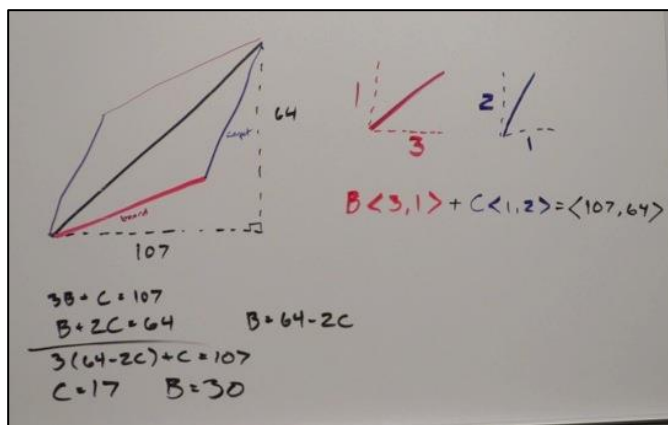 64
carpet
board
107
1
3
2
1
B<3,1> + C<1,2> = <107,64>
3B + C = 107
B + 2C = 64
B = 64 - 2C
3(64-2C) + C = 107
C = 17 B = 30